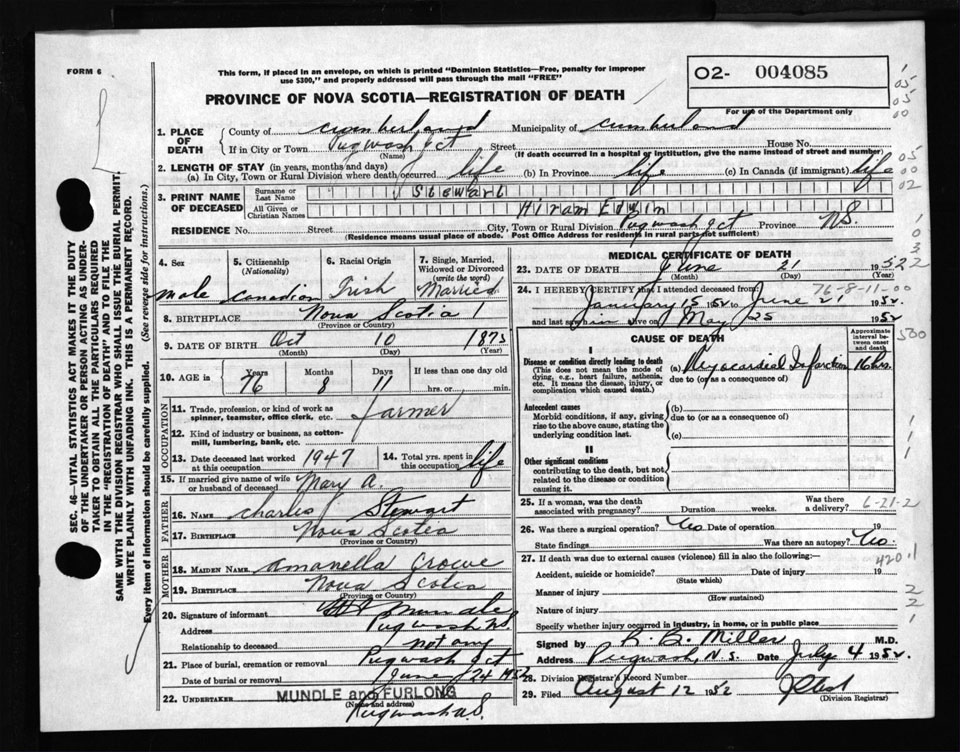 FORM 6
This form, if placed in an envelope, on which is printed "Dominion Statistics—Free, penalty for improper
use $300," and properly addressed will pass through the mail "FREE"
O2- 004085
For use of the Department only
PROVINCE OF NOVA SCOTIA—REGISTRATION OF DEATH
1. PLACE OF DEATH County of Cumberland Municipality of Cumberland
If in City or Town Pugwash Jct Street House No.
(Name) (If death occurred in a hospital or institution, give the name instead of street and number)
2. LENGTH OF STAY (in years, months and days)
(a) In City, Town or Rural Division where death occurred life (b) In Province life (c) In Canada (if immigrant) life
3. PRINT NAME OF DECEASED Surname or Last Name Stewart
All Given or Christian Names Hiram Edwin
RESIDENCE No. Street City, Town or Rural Division Pugwash Jct Province N.S.
(Residence means usual place of abode. Post Office Address for residents in rural parts not sufficient)
4. Sex 5. Citizenship (Nationality) 6. Racial Origin 7. Single, Married, Widowed or Divorced (write the word)
male Canadian Irish Married
8. BIRTHPLACE Nova Scotia 1
(Province or Country)
9. DATE OF BIRTH Oct 10 1875
(Month) (Day) (Year)
10. AGE in Years Months Days If less than one day
76 8 11 hrs. or min.
OCCUPATION
11. Trade, profession, or kind of work as spinner, teamster, office clerk, etc. farmer
12. Kind of industry or business, as cotton-mill, lumbering, bank, etc.
13. Date deceased last worked at this occupation 1947 14. Total yrs. spent in this occupation life
15. If married give name of wife or husband of deceased Mary A.
FATHER
16. NAME Charles Stewart
17. BIRTHPLACE Nova Scotia
(Province or Country)
MOTHER
18. MAIDEN NAME Amanella Crowe
19. BIRTHPLACE Nova Scotia
(Province or Country)
20. Signature of informant Mundle
Address Pugwash N.S.
Relationship to deceased not any
21. Place of burial, cremation or removal Pugwash Jct
Date of burial or removal June 24 1952
22. UNDERTAKER MUNDLE and FURLONG
(Name and address)
Pugwash N.S.
MEDICAL CERTIFICATE OF DEATH
23. DATE OF DEATH June 21 1952
(Month) (Day) (Year)
24. I HEREBY CERTIFY that I attended deceased from 76-8-11-00
January 15 1952 to June 21 1952
and last saw him alive on May 25 1952
CAUSE OF DEATH
Approximate interval between onset and death
I
Disease or condition directly leading to death
(This does not mean the mode of dying, e.g., heart failure, asthenia, etc. It means the disease, injury, or complication which caused death.)
(a) Myocardial Infarction 16 hrs.
due to (or as a consequence of)
Antecedent causes
Morbid conditions, if any, giving rise to the above cause, stating the underlying condition last.
(b)
due to (or as a consequence of)
(c)
II
Other significant conditions
contributing to the death, but not related to the disease or condition causing it.
25. If a woman, was the death associated with pregnancy? Duration weeks. Was there a delivery? 6-21-2
26. Was there a surgical operation? No Date of operation 19
State findings Was there an autopsy? No
27. If death was due to external causes (violence) fill in also the following:— 420.1
Accident, suicide or homicide? Date of injury 19
(State which)
Manner of injury
(How sustained)
Nature of injury
Specify whether injury occurred in industry, in home, or in public place
Signed by R. B. Miller M.D.
Address Pugwash, N.S. Date July 4 1952.
28. Division Registrar's Record Number
29. Filed August 12 1952
(Division Registrar)
SEC. 46—VITAL STATISTICS ACT MAKES IT THE DUTY
OF THE UNDERTAKER OR PERSON ACTING AS UNDER-
TAKER TO OBTAIN ALL THE PARTICULARS REQUIRED
IN THE "REGISTRATION OF DEATH" AND TO FILE THE
SAME WITH THE DIVISION REGISTRAR WHO SHALL ISSUE THE BURIAL PERMIT.
WRITE PLAINLY WITH UNFADING INK. THIS IS A PERMANENT RECORD.
Every item of information should be carefully supplied. (See reverse side for instructions.)